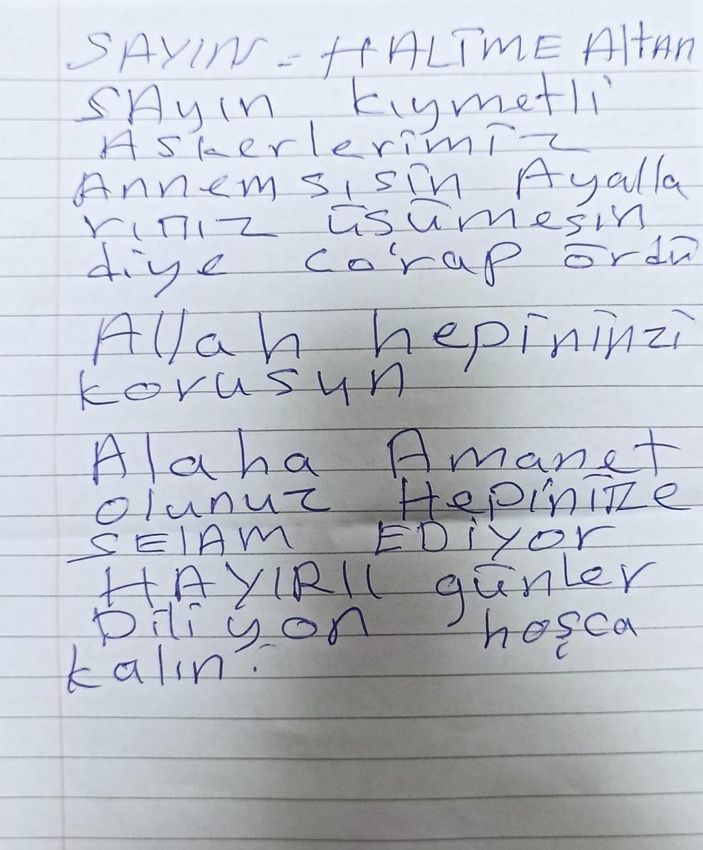 SAYIN - HALİME AltAn
SAyın kıymetli
Askerlerimiz
Annem sışin Ayalla
rınız üşümesin
diye Co'rap ördü
Allah hepininzi
korusun
Alaha Amanet
olunuz Hepinize
SElAM EDİYOr
HAYIRlI günler
Diliyon hoşca
kalın.